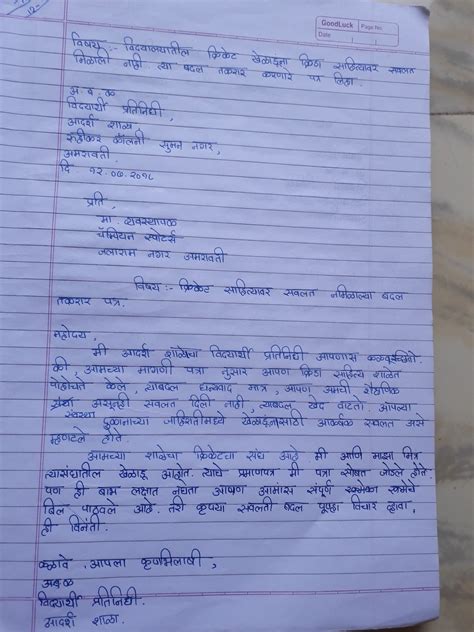 GoodLuck Page No.
Date
विषय :- विद्यालयातील क्रिकेट खेळाडूंना क्रिडा साहित्यावर सवलत
मिळाली नाही त्या बद्दल तक्रार करणारे पत्र लिहा.
अ. ब. क
विद्यार्थी प्रतिनिधी,
आदर्श शाळा,
रुक्मीकर कॉलनी सुमन नगर,
अमरावती.
दि १२.०७.२०१८
प्रति,
मा. व्यवस्थापक
चॅम्पियन स्पोर्ट्स
जलाराम नगर अमरावती
विषय :- क्रिकेट साहित्यावर सवलत नमिळाल्या बद्दल
तक्रार पत्र.
महोदय,
मी आदर्श शाळेचा विद्यार्थी प्रतिनिधी आपणास कळवू इच्छितो.
की, आमच्या मागणी पत्रा नुसार आपण क्रिडा साहित्य शाळेत
पोहोचते केले, त्याबद्दल धन्यवाद मात्र, आपण आमची शैक्षणिक
संस्था असूनही सवलत दिली नाही, त्याबद्दल खेद वाटतो. आपल्या
दुकानाच्या जाहिरातीमध्ये खेळाडूंसाठी आकर्षक सवलत असे
म्हणटले होते.
आमच्या शाळेचा क्रिकेटचा संघ आहे मी आणि माझा मित्र
त्यासंघातील खेळाडू आहोत. त्याचे प्रमाणपत्र मी पत्रा सोबत जोडले होते
पण ही बाब लक्षात नघेता आपण आमांस संपूर्ण रकमेचा
बिल पाठवले आहे. तरी कृपया सवलती बद्दल पून्हा विचार व्हावा,
ही विनंती.
कळावे, आपला कृपाभिलाषी,
अबक
विद्यार्थी प्रतिनिधी.
आदर्श शाळा.